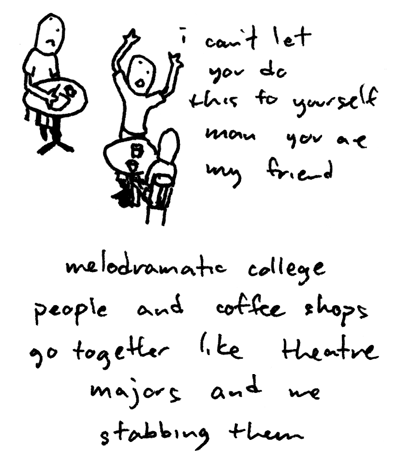 i can't let
you do
this to yourself
man you are
my friend
melodramatic college
people and coffee shops
go together like theatre
majors and me
stabbing them